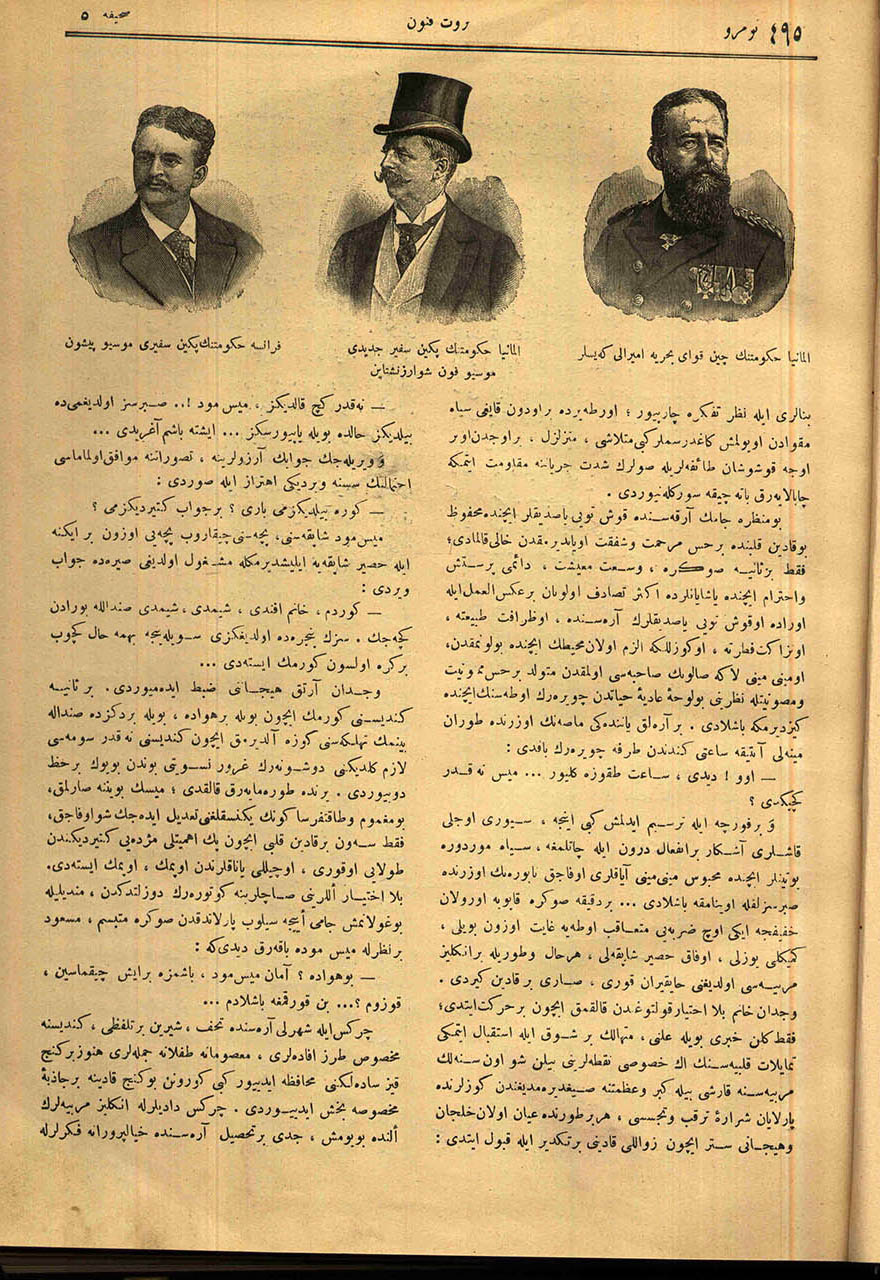 نومرو ٤٩٥
ثروت فنون
صحیفه ٥
المانیا حکومتنك چین قوای بحریه امیرالی که‌یسلر
المانیا حکومتنك پکین سفیر جدیدی
موسیو فون شوارزنشتاین
فرانسه حکومتنك پکین سفیری موسیو پیشون
بنالری ایله نظر تفکره چارپیور ؛ اورطه‌یرده براودون قایغی سیاه
مقوادن اویولمش کاغدرسملر کبی متلاشی ، متزلزل ، براوجدن اوبر
اوجه قوشوشان طائفه‌لریله صولرك شدت جریاننه مقاومت ایتمکه
چابالایه‌رق باته چیقه سورکله‌نیوردی .
بومنظره جامك آرقه‌سنده قوش توبی یاصدیقلر ایچنده محفوظ
بوقادین قلبنده برحس مرحمت وشفقت اویاندیرمقدن خالی قالمادی ؛
فقط برثانیه صوکره ، وسعت معیشت ، دائمی پرستش
واحترام ایچنده یاشایانلرده اکثر تصادف اولونان برعکس‌العمل ایله
اوراده اوقوش توبی یاصدیقلرك آره‌سنده ، اوظرافت طبیعته ،
اونزاکت فطرته ، اوکوزللکه الزم اولان محیطك ایچنده بولونمقدن،
اومینی مینی لاکه صالونك صاحبه‌سی اولمقدن متولد برحس ممنونیت
ومصونیتله نظرینی بولوحهٔ عادیهٔ حیاتدن چویره‌رك اوطه‌سنك ایچنده
کزدیرمکه باشلادی . برآره‌لق یاننده‌کی ماصه‌نك اوزرنده طوران
مینه‌لی آنتیقه ساعتی کندندن طرفه چویره‌رك باقدی :
— اوو ! دیدی ، ساعت طقوزه کلیور ... میس نه قدر
کچیکدی ؟
و برفورچه ایله ترسیم ایدلمش کبی اینجه ، سیوری اوجلی
قاشلری آشکار برانفعال درون ایله چاتلمغه ، سیاه موردوره
بوتینلر ایچنده محبوس مینی مینی آیاقلری اوفاجق تابوره‌نك اوزرنده
صبرسزلقله اوینامغه باشلادی ... بردقیقه صوکره قاپویه اورولان
خفیفجه ایکی اوچ ضربه‌یی متعاقب اوطه‌یه غایت اوزون بویلی ،
کمیکلی یوزلی ، اوفاق حصیر شاپقه‌لی ، هرحال وطوریله برانکلیز
مربیه‌سی اولدیغنی حایقیران قوری ، صاری برقادین کیردی .
وجدان خانم بلا اختیار قولتوغدن قالقمق ایچون برحرکت ایتدی ؛
فقط کلن خبری بویله علنی ، متهالك بر شوق ایله استقبال ایتمکی
تمایلات قلبیه‌سنك اك خصوصی نقطه‌لرینی بیلن شو اون سنه‌لك
مربیه‌سنه قارشی بیله کبر وعظمتنه صیغدیره‌مدیغندن کوزلرنده
پارلایان شرارهٔ ترقب وتجسسی ، هربرطورنده عیان اولان خلجان
وهیجانی ستر ایچون زواللی قادینی برتکدیر ایله قبول ایتدی :
— نه‌قدر کچ قالدیکز ، میس مود !.. صبرسز اولدیغمی ده
بیلدیکز حالده بویله یاپیورسکز ... ایشته باشم آغریدی ...
و ویریله‌جك جوابك آرزولرینه ، تصوراتنه موافق اولماماسی
احتمالنك سسینه ویردیکی اهتزاز ایله صوردی :
— کوره بیلدیکزمی باری ؟ برجواب کتیردیکزمی ؟
میس مود شاپقه‌سنی، پچه‌سنی چیقاروب پچه‌یی اوزون بر ایکنه
ایله حصیر شاپقه‌یه ایلیشدیرمکله مشغول اولدیغی صیره‌ده جواب
ویردی :
— کوردم ، خانم افندی ، شیمدی ، شیمدی صندالله بورادن
کچه‌جك . سزك پنجره‌ده اولدیغکزی سویله‌ینجه بهمه حال کچوب
برکره اولسون کورمك ایسته‌دی ...
وجدان آرتق هیجانی ضبط ایده‌میوردی . بر ثانیه
کندیسنی کورمك ایچون بویله برهواده ، بویله بردکزده صنداله
بینمك تهلکه‌سنی کوزه آلدیرمق ایچون کندیسنی نه قدر سومه‌سی
لازم کلدیکنی دوشونه‌رك غرور نسویتی بوندن بویوك برحظ
دویییوردی . برنده طوره‌مایه‌رق قالقدی ؛ میسك بویننه صارلمق،
بومغموم وطاقتفرسا کونك یکنسقلغنی تعدیل ایده‌جك شواوفاجق،
فقط سه‌ون برقادین قلبی ایچون پك اهمیتلی مژده‌یی کتیردیکندن
طولایی اوقوری ، اوچیللی یاناقلرندن اوپمك ، اوپمك ایسته‌دی.
بلا اختیار أللرینی صاچلرینه کوتوره‌رك دوزلتدکدن ، مندیلیله
بوغولانمش جامی أییجه سیلوب پارلاندقدن صوکره متبسم ، مسعود
برنظرله میس موده باقه‌رق دیدی که :
— بوهواده ؟ آمان میس مود ، باشمزه برایش چیقماسین ،
قوزوم ؟... بن قورقمغه باشلادم ...
چرکس ایله شهرلی آره‌سنده تحف ، شیرین برتلفظی ، کندیسنه
مخصوص طرز افاده‌لری ، معصومانه طفلانه جمله‌لری هنوزبرکنج
قیز ساده‌لکنی محافظه ایدییور کبی کورونن بوکنج قادینه برجاذبهٔ
مخصوصه بخش ایدییوردی . چرکس دادیلرله انکلیز مربیه‌لرك
ألنده بویومش ، جدی برتحصیل آره‌سنده خیالپرورانه فکرلرله